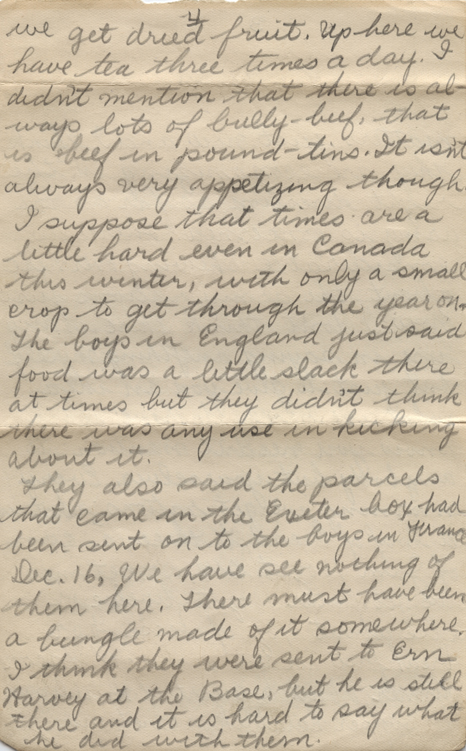 4
we get dried fruit. Up here we
have tea three times a day. I
didn't mention that there is al-
ways lots of bully-beef, that
is beef in pound-tins. It isn't
always very appetizing though.
I suppose that times are a
little hard even in Canada
this winter, with only a small
crop to get through the year on.
The boys in England just said
food was a little slack there
at times but they didn't think
there was any use in kicking
about it.
They also said the parcels
that came in the Exeter box had
been sent on to the boys in France
Dec. 16, We have see nothing of
them here. There must have been
a bungle made of it somewhere.
I think they were sent to Ern
Harvey at the Base, but he is still
there and it is hard to say what
he did with them.